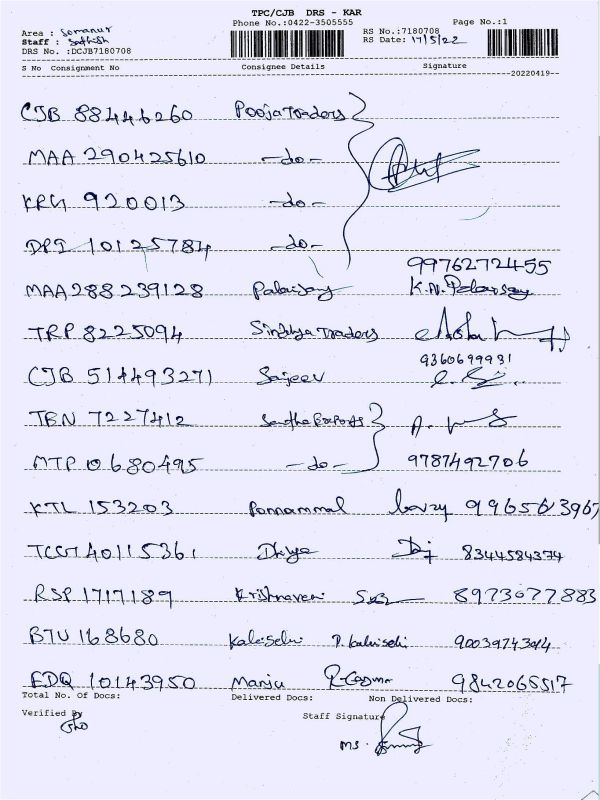 TPC/CJB DRS - KAR
Phone No.:0422-3505555
Page No.:1
Area : Somanur
RS No.:7180708
Staff : Sathish
RS Date: 17/5/22
DRS No. :DCJB7180708
S No Consignment No Consignee Details Signature
20220419
CJB 88446260 Pooja Traders
MAA 290425610 -do-
KRG 920013 -do-
DPI 10125784 -do-
9976272455
MAA 288239128 Palanisamy K.N. Palanisamy
TRP 8225094 Sindhya Traders
9360699931
CJB 514493271 Sajeev
TBN 7227412 Sandha Exports
MTP 0680495 -do- 9787492706
KTL 153203 Ponnammal 9965613967
TCG 40115361 Divya 8344584374
RSP 1717189 Krishnaveni 8973077883
BTU 168680 Kalaiselvi P. Kalaiselvi
EDQ 10143950 Manju 9842065517
Total No. Of Docs: Delivered Docs: Non Delivered Docs:
Verified By
Staff Signature